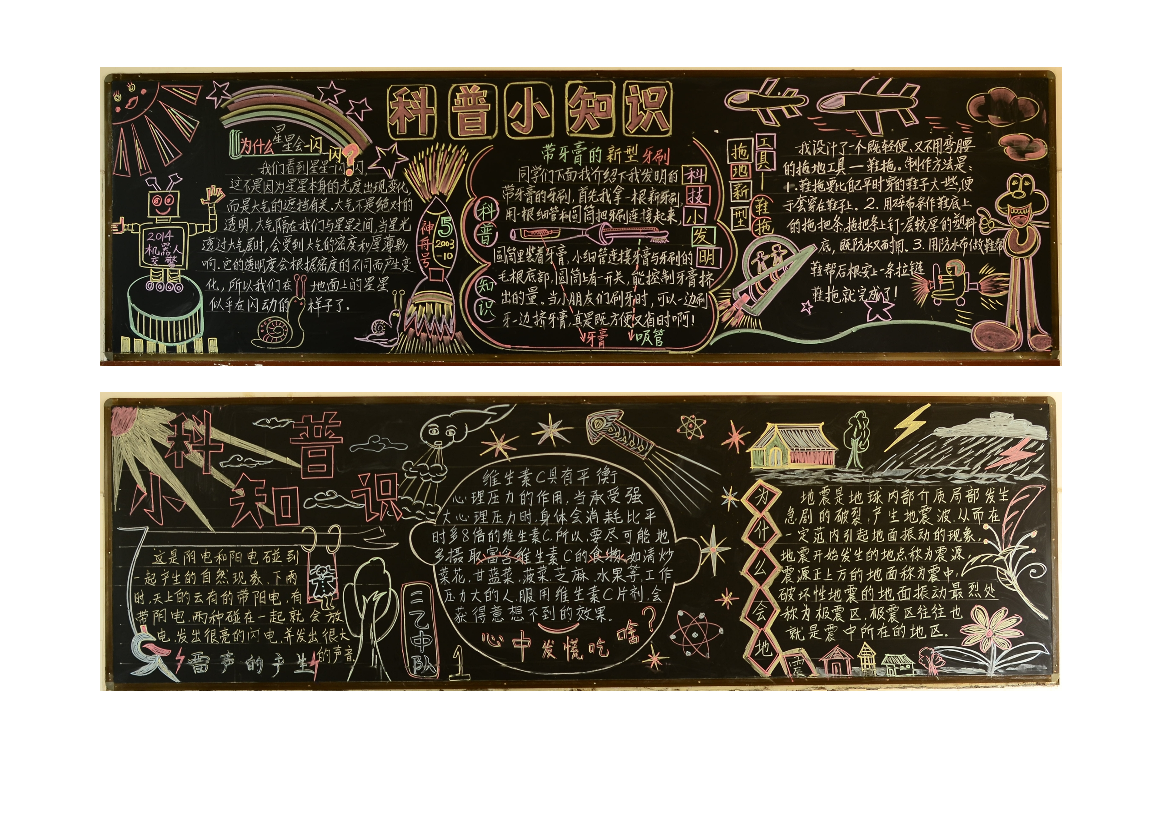 科普小知识
为什么星星会一闪一闪?
我们看到星星闪闪,
这不是因为星星本身的光度出现变化,
而是大气的遮挡有关,大气不是绝对的
透明,大气隔在我们与星星之间,当星光
透过大气层时,会受到大气的密度和厚薄影
响,它的透明度会根据密度的不同而产生变
化,所以我们在地面上的星星
似乎在闪动的样子了。
2014
机器人
交警
神舟5号
2003
10
科普知识
带牙膏的新型牙刷
同学们下面我介绍下我发明的
带牙膏的牙刷,首先我拿一根新牙刷
用一根细管和圆筒把牙刷连接起来
圆筒里装着牙膏,小细管连接牙膏与牙刷的
毛根底部,圆筒上有一开关,能控制牙膏挤
出的量。当小朋友们刷牙时,可以一边刷
牙一边挤牙膏,真是既方便又省时啊!
牙膏 吸管
科技小发明
拖地新型
工具—鞋拖
我设计了一个既轻便,又不用弯腰
的拖地工具—鞋拖。制作方法是:
1.鞋拖要比你平时穿的鞋子大一些,便
于套穿在鞋子上。2.用碎布条作鞋底上
的拖把条,拖把条上钉一层较厚的塑料
底,既防水又耐用。3.用防水布做鞋
鞋帮后根安上一条拉链
鞋拖就完成了!
科普
小知识
这是阴电和阳电碰到
一起产生的自然现象,下雨
时,天上的云有的带阳电,有
带阴电,两种碰在一起就会放
电,发出很亮的闪电,并发出很大
的声音
雷声的产生
二乙中队
维生素C具有平衡
心理压力的作用,当承受强
大心理压力时,身体会消耗比平
时多8倍的维生素C,所以,要尽可能地
多摄取富含维生素C的食物,如清炒
菜花,甘蓝菜,菠菜,芝麻,水果等,工作
压力大的人,服用维生素C片剂,会
获得意想不到的效果。
心中发慌吃啥?
为什么会地震
地震是地球内部介质局部发生
急剧的破裂,产生地震波,从而在
一定范内引起地面振动的现象,
地震开始发生的地点称为震源,
震源正上方的地面称为震中,
破坏性地震的地面振动最烈处
称为极震区,极震区往往也
就是震中所在的地区.